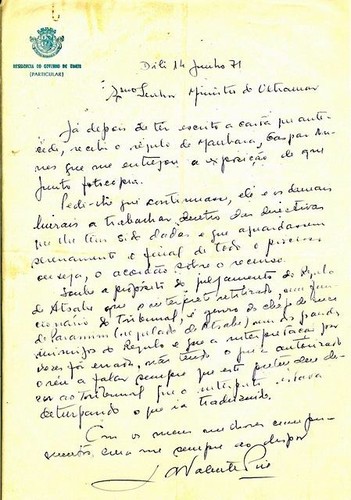 RESIDÊNCIA DO GOVERNO DE TIMOR
(PARTICULAR)
Dili 14 Junho 71
Senhor Ministro do Ultramar
Já depois de ter escrito a carta que antecede, recebi o régulo de Maubara, Gaspar
Nunes que me entregou a exposição de que
junto fotocópia.
Pedi-lhe que continuasse, ele e os demais
liurais a trabalhar dentro das directivas
que lhe têm sido dadas e que aguardassem
serenamente o final de todo o processo,
ou seja, o acordão sobre o recurso.
Soube a propósito do julgamento do régulo
de Atsabe que o intérprete utilizado, um fun-
cionário do tribunal, é genro do chefe de suco
de (regulado de Atsabe) um dos grandes
inimigos do Régulo e que a interpretação por
vezes foi errada, não tendo o
a falar sempre que este pretendeu di-
zer ao tribunal que o intérprete estava
deturpando o que ia traduzindo.
Com os meus melhores cum-
primentos, creia-me sempre ao dispor
Valente Pires